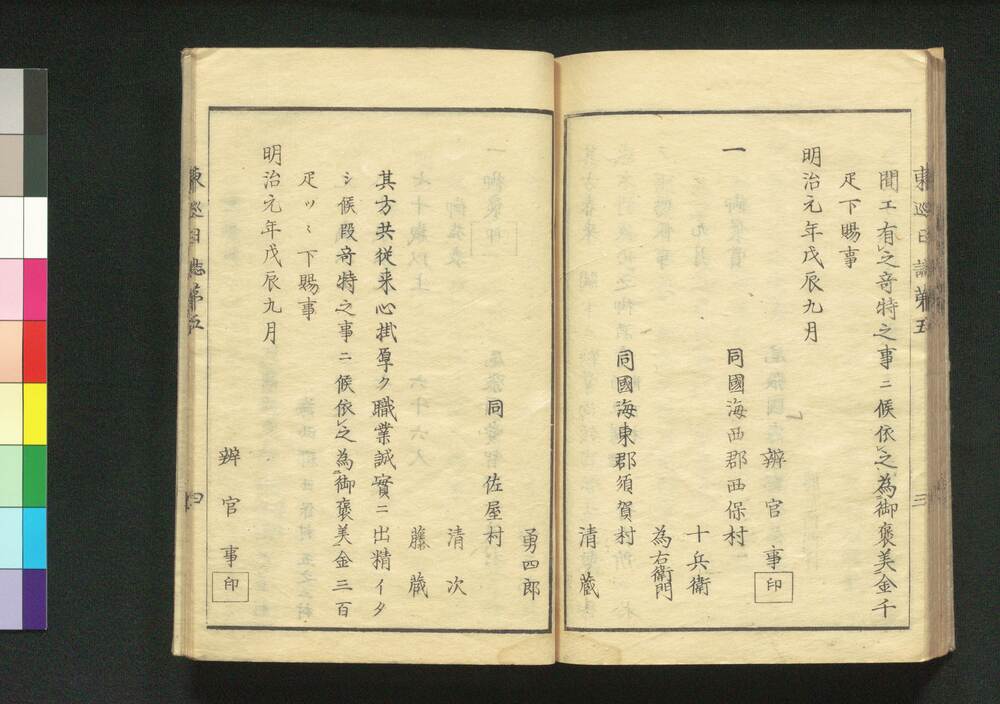 聞エ有之竒特之事ニ候依之為御褒美金千
疋下賜事
明治元年戊辰九月
辨官事印
一
同國海西郡西保村
十兵衛
為右衛門
同國海東郡須賀村
清蔵
勇四郎
同佐屋村
清次
藤蔵
其方共従来心掛厚ク職業誠實ニ出精イタ
シ候段竒特之事ニ候依之為御褒美金三百
疋ツヽ下賜事
明治元年戊辰九月
辨官事印
東巡日誌第五
三
東巡日誌第五
四